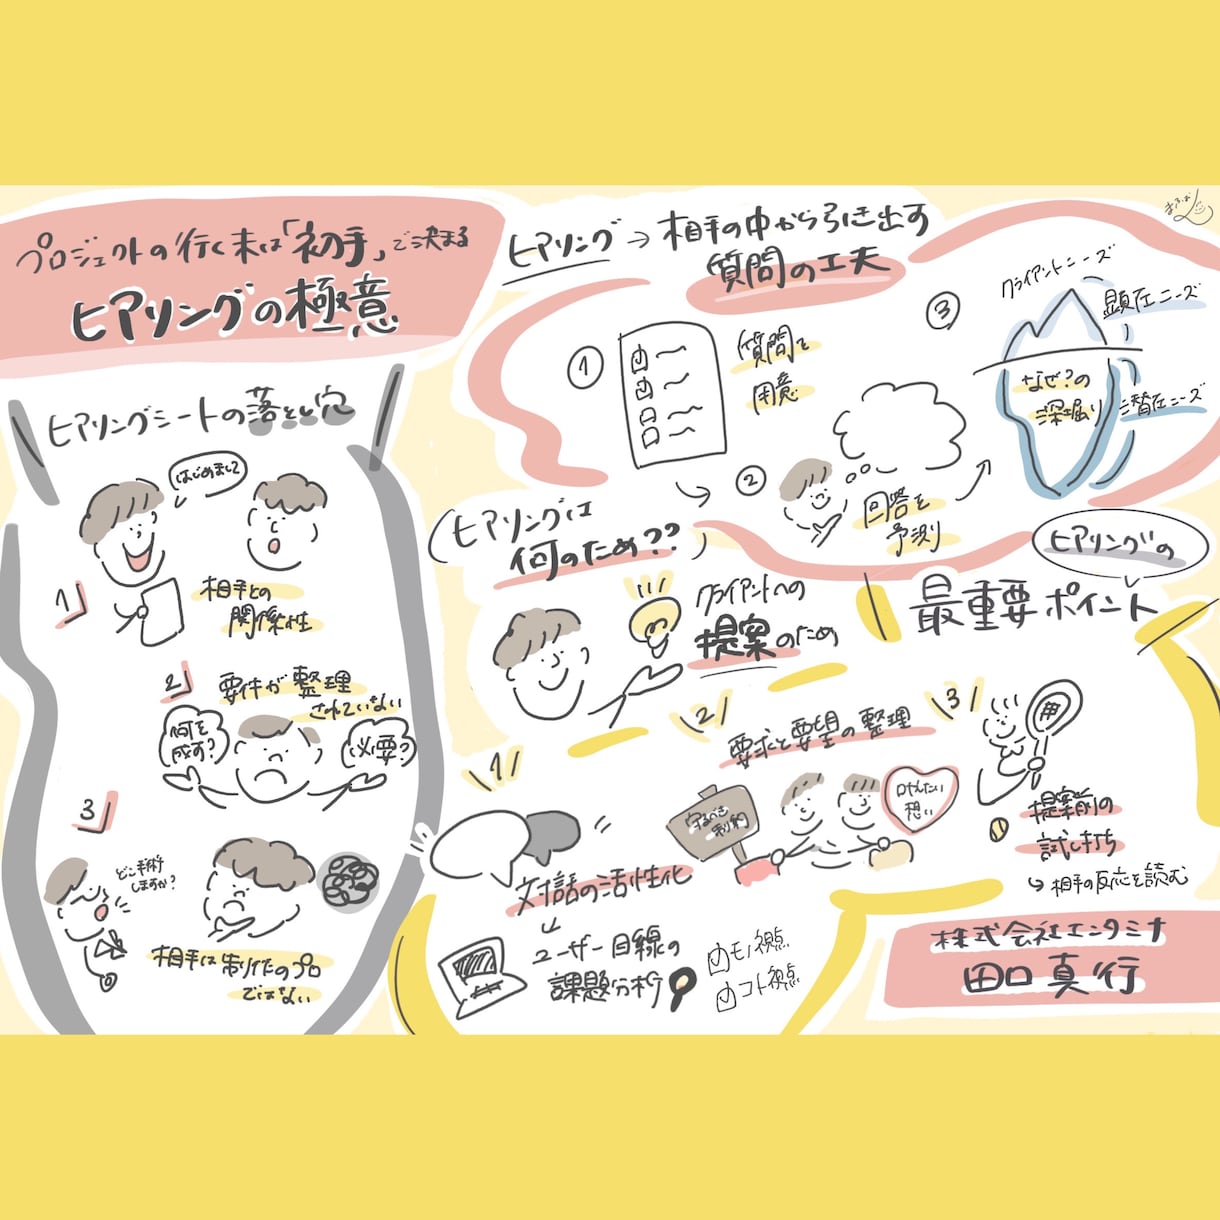 プロジェクトの行く末は「初手」で決まる
ヒアリングの極意
ヒアリングシートの落とし穴
はじめまして
1
相手との
関係性
2
要件が整理
されていない
何を
成す?
必要?
3
どこ手術
しますか?
相手は制作のプロ
ではない
ヒアリング→相手の中から引き出す
質問の工夫
①
質問を
用意
②
回答を
予測
③
クライアントニーズ
顕在ニーズ
なぜ?の
深堀り
潜在ニーズ
ヒアリングは
何のため??
クライアントへの
提案のため
ヒアリングの
最重要ポイント
1
対話の活性化
ユーザー目線の
課題分析
モノ視点
コト視点
2
要求と要望の整理
守るべき
制約
叶えたい
想い
3
用
提案前の
試し打ち
↳相手の反応を読む
株式会社エンタミナ
田口真行